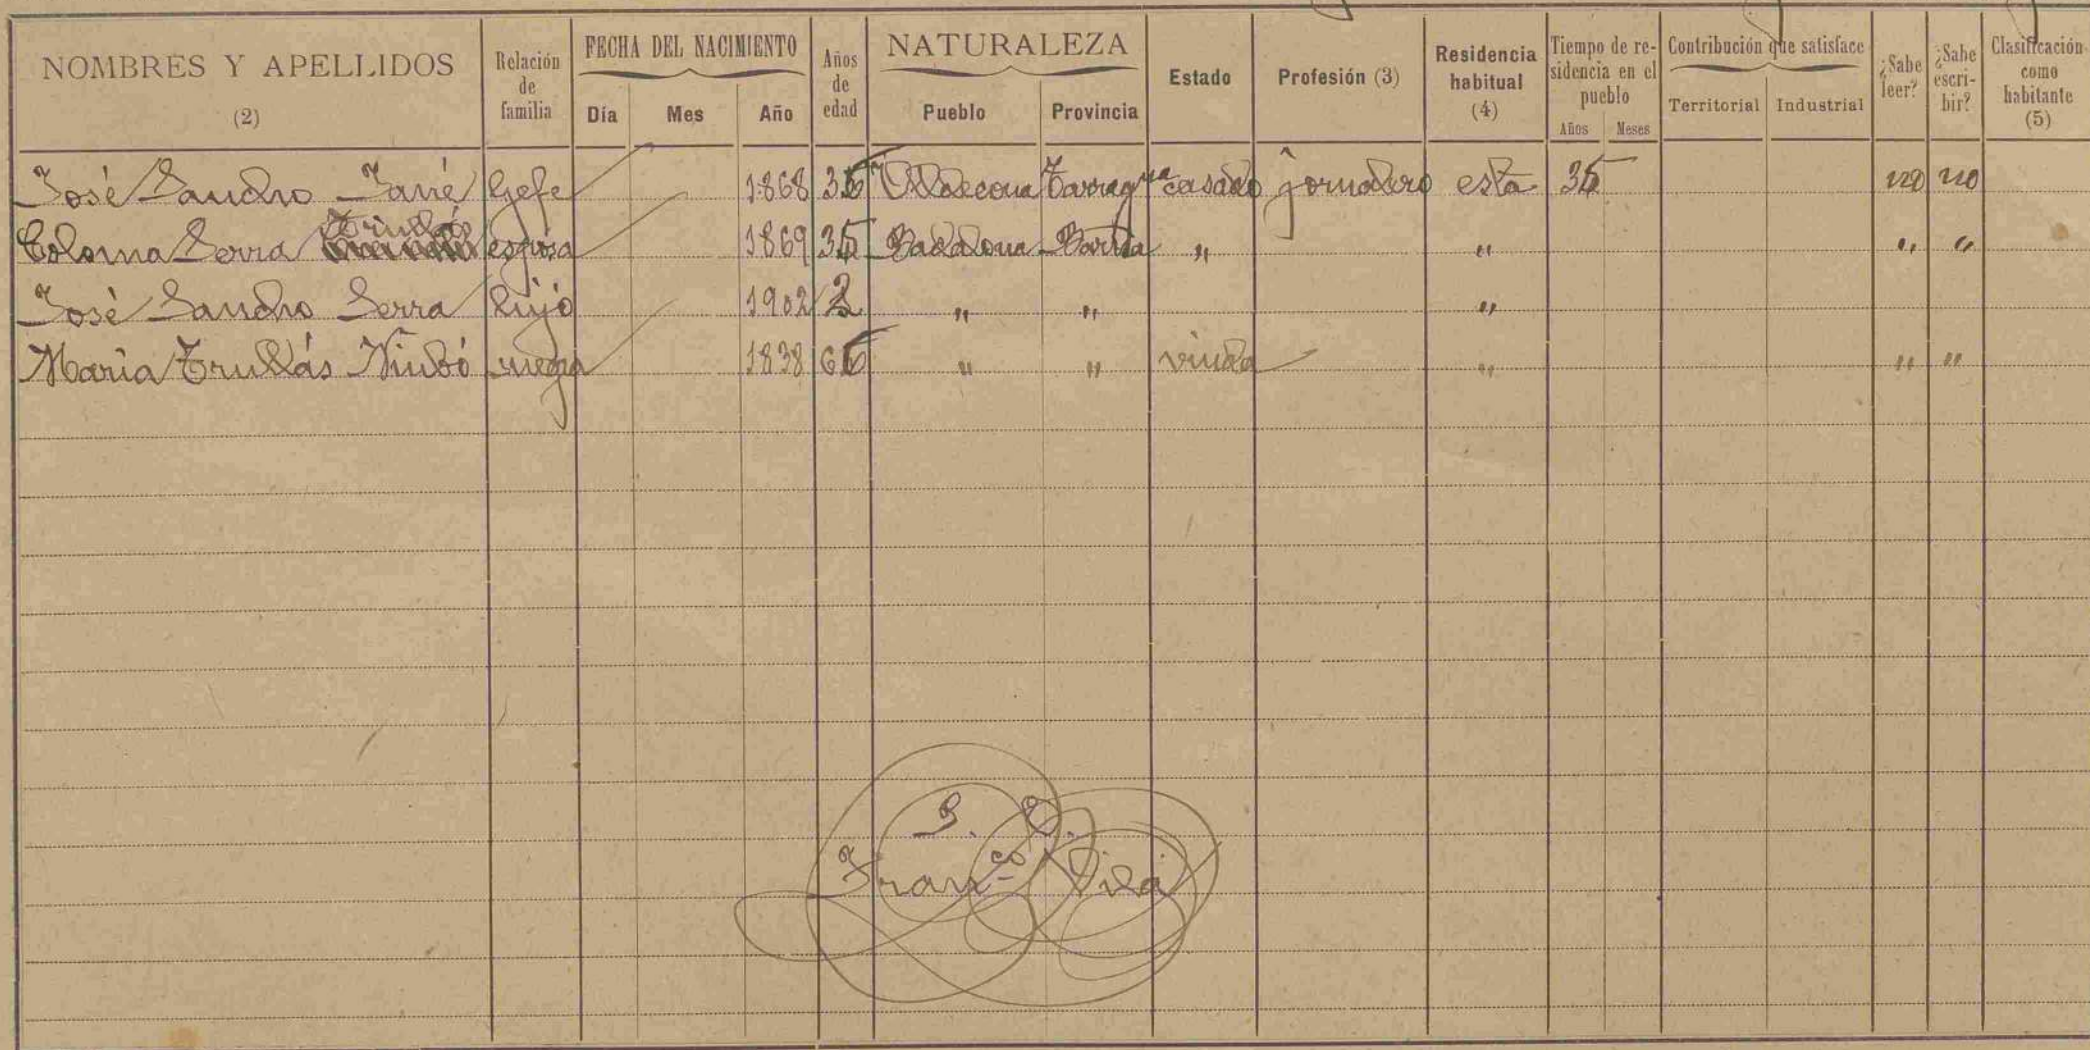 NOMBRES Y APELLIDOS (2) Relación de familia FECHA DEL NACIMIENTO Día Mes Año Años de edad NATURALEZA Pueblo Provincia Estado Profesión (3) Residencia habitual (4) Tiempo de residencia en el pueblo Años Meses Contribución que satisface Territorial Industrial ¿Sabe leer? ¿Sabe escribir? Clasificación como habitante (5)
José Sancho Gefe 1868 Ulldecona Tarragna casado jornadero esta no no
Coloma Serra Trullás esposa 1869 35 Badalona Barna " " " "
José Sancho Serra hijo 1902 2 " " "
Maria Trullás Niubó suegra 1838 " " viuda " " "
S. O.
Franco Vila